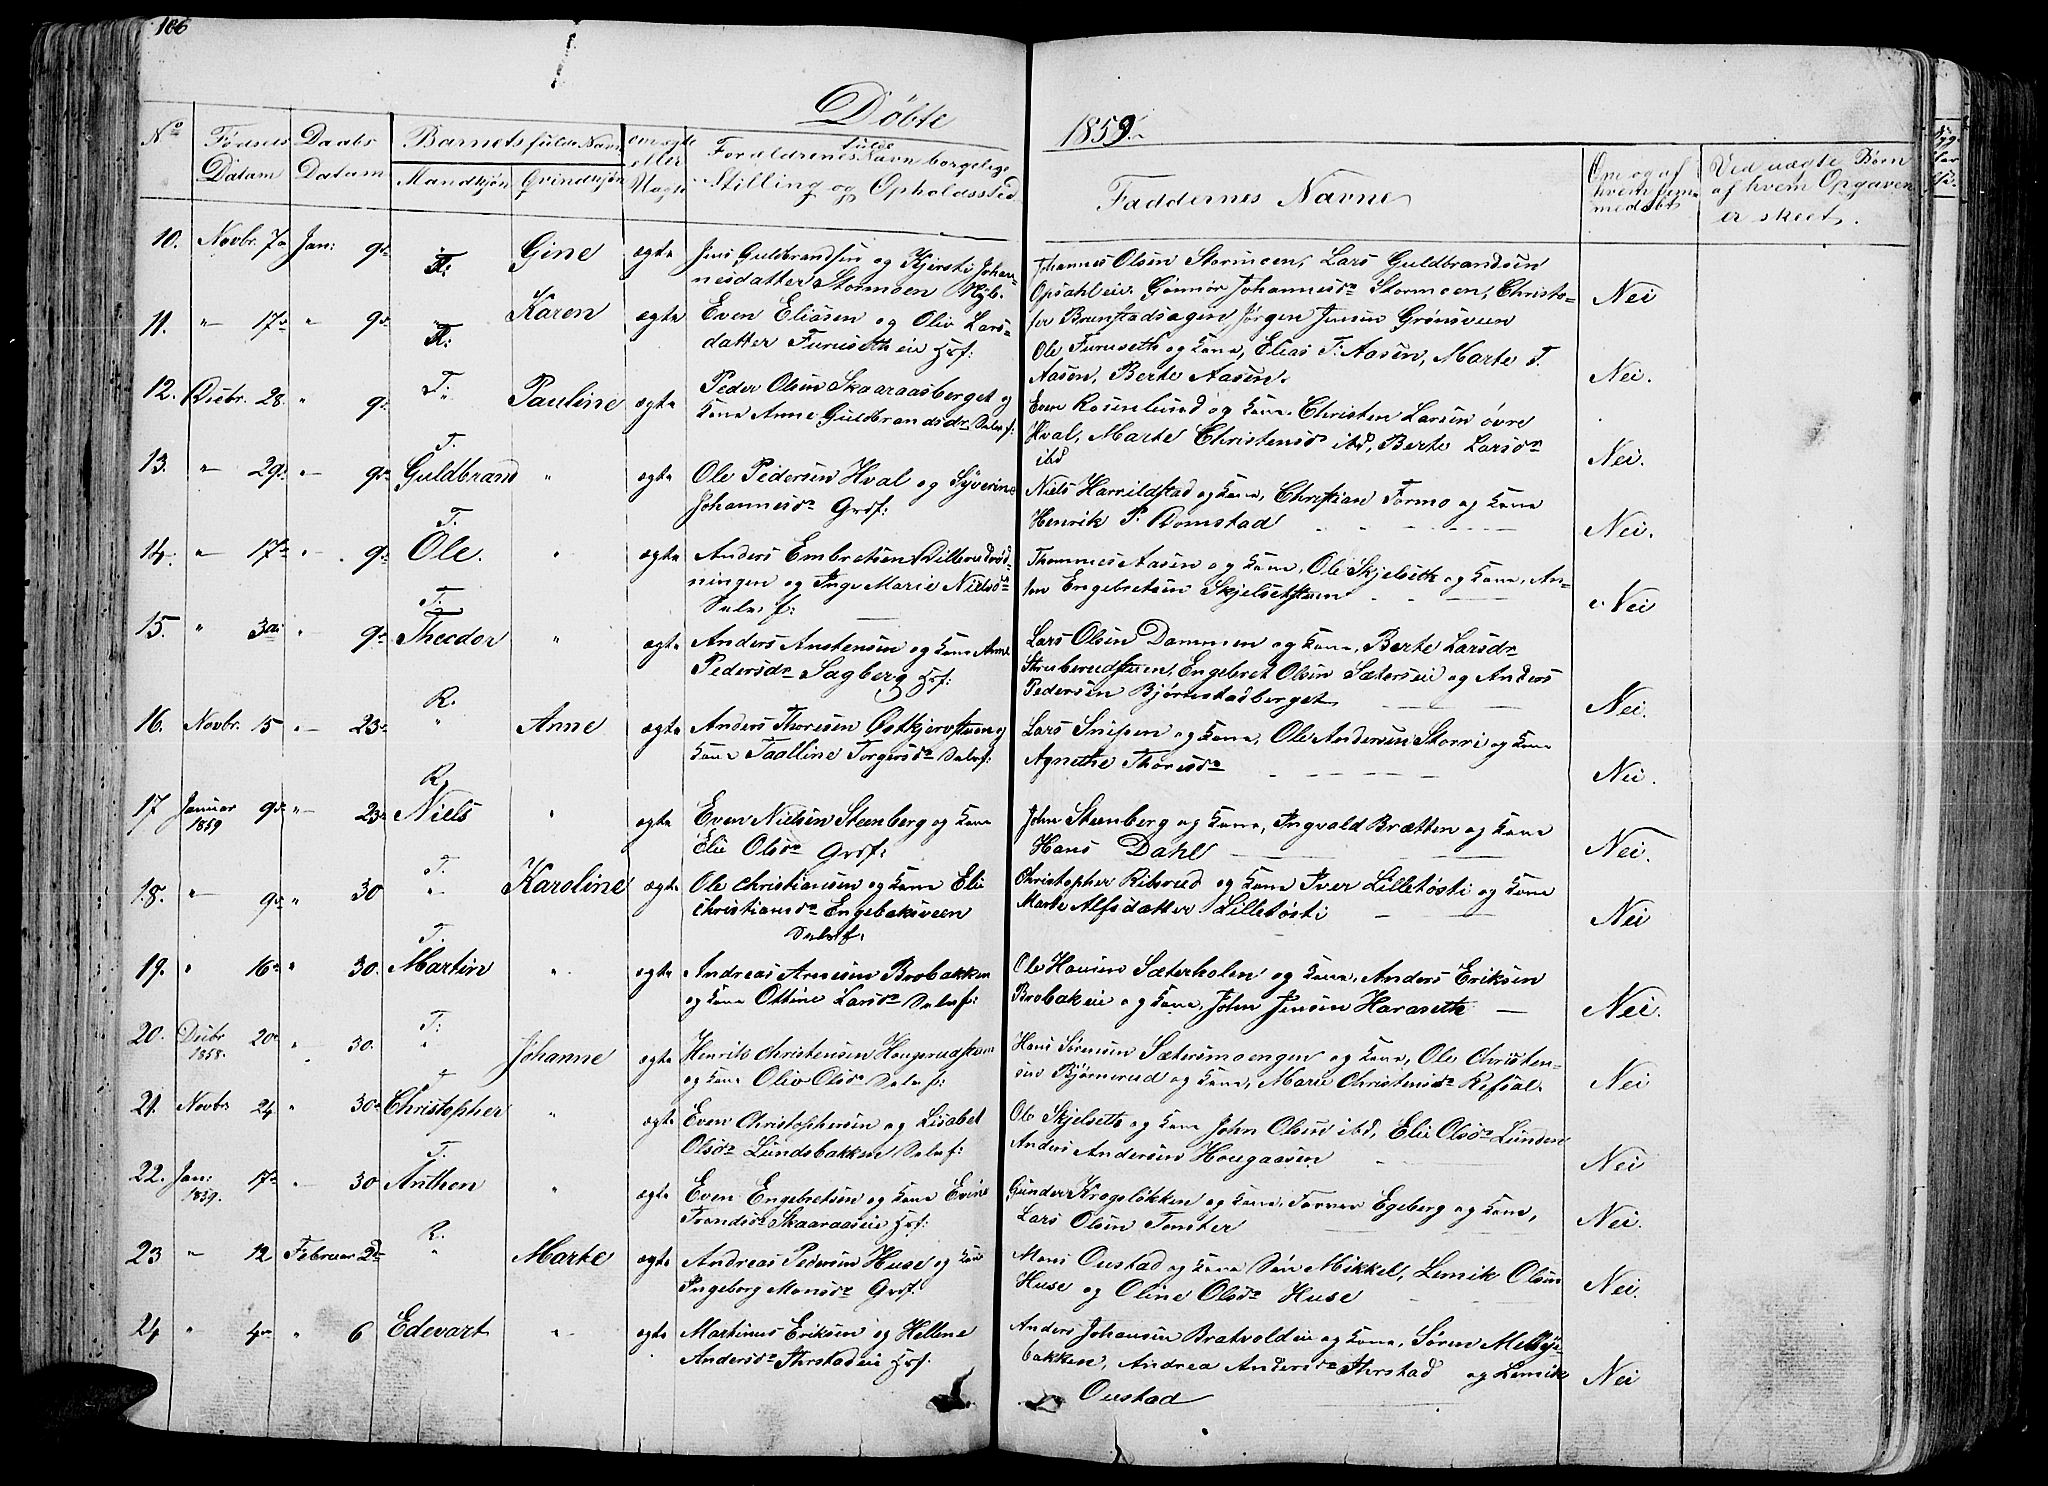 106
Døbte
1859.
No
Fødsels Datum
Daabs Datum
Barnets fulde Navn
Mandkjøn
Qvindekjøn
om ægte eller Uægte
Forældrenes fulde Navn borgelige Stilling og Opholdssted
Faddernes Navne
Om og af hvem hjemmedøbt
Ved uægte Børn af hvem Opgaven er skeet.
10. Novbr. 7de Jan: 9de T: Gine ægte Jens Guldbrandsen og Kjersti Johan-
nesdatter Stormoen
Johannes Olsen Stormoen, Lars Guldbrandsen
Opsahleie. Gunnor Johannesdr Stormoen, Christo-
fer Brunstadsagen Jørgen Jensen Grønsveen
Nei
11. " 17de " 9de T: Karen ægte Even Eliasen og Oliv Lars-
datter Furuseth eie Hrf:
Ole Furuseth og Kone, Elias T. Aasen, Marte T.
Aasen, Berte Aasen.
Nei.
12. Debr. 28. " 9de T: Pauline ægte Peder Olsen Skaaraasberget og
Kone Anne Guldbrandsdr
Even Rosenlund og Kone, Christen Larsen øvre
Hval, Marte Christensdr ibd, Berte Larsdr
ibd
Nei.
13. " 29de " 9de T. Guldbrand " ægte Ole Pedersen Hval og Syverine
Johannesdr Grdf:
Niels Harrildstad og Kone, Christian Formo og Kone
Henrik P. Romstad
Nei.
14. " 17de " 9de T. Ole. " ægte Anders Embretsen Dillerudrød-
ningen og Inge Marie Nielsdr
Anton Engebretsen Skjelsethstuen
Thommes Aasen og Kone, Ole Skjelseth og Kone, An-
Nei
15. " 3de " 9de T. Theodor " ægte Anders Anstensen og Kone Anne
Pedersdr Sagberg Hrf:
Lars Olsen Dammen og Kone, Berte Larsdr
Struberudstuen, Engebret Olsen Sæterseie og Anders
Pedersen Bjørnstadberget
Nei.
16. Novbr. 15 " 23de R. " Anne ægte Anders Thoresen Østkjernstuen og
Kone Taalline Torgersdr
Lars Snipen og Kone, Ole Andersen Storri og Kone
Agnethe Thoresdr
Nei.
17 Januar 1859 9de " 23de R. Niels " ægte Even Nielsen Steenberg og Kone
Elie Olsdr Grdf:
John Steenberg og Kone, Ingvald Brætten og Kone
Hans Dahl
Nei.
18. " 9de " 30 T. " Karoline ægte Ole Christiansen og Kone Eli
Christiansdr Engebaksveen
Christopher Ribsrud og Kone Iver Lilletøsti og Kone
Marte Alfsdatter Lilletøsti
Nei
19. " 16de " 30. T. Martin " ægte Andreas Arnesen Brobakken
og Kone Ottine Larsdr
Ole Hansen Sæterholen og Kone, Anders Eriksen
Brobakeie og Kone, John Jensen Haraseth
Nei.
20. Debr 1858. 20de " 30. T: " Johanne ægte Henrik Christensen Haugerudstuen
og Kone Oliv Olsdr
Hans Sørensen Sætersmoengen og Kone, Ole Christen-
sen Bjørnerud og Kone, Marie Christensdr Refsal.
Nei
21. Novbr 24 " 30de T Christopher " ægte Even Christophersen og Lisabet
Olsdr Lundsbakken
Ole Skjelseth og Kone John Olsen ibd, Elie Olsdr Lunden
Anders Andersen Hougaasen
Nei
22. Jan: 1859. 17de " 30 T. Anthon " ægte Even Engebretsen og Kone Evine
Trondsdr Skaaraaseie Hrf:
Gunder Krogsløkken og Kone, Farver Egeberg og Kone,
Lars Olsen Tomter
Nei.
23 " 12 Februar 2de R. " Marte ægte Andreas Pedersen Huse og Kone
Ingeborg Monsdr Grdf.
Mons Oustad og Kone Søn Mikkel, Lemik Olsen
Huse og Oline Olsdr Huse
Nei.
24 " 4de " 6 Edevart " ægte Martinus Eriksen og Hellene
Andersdr Thrstadeie Hrf:
Anders Johansen Bratvoldeie og Kone, Søren Melbye-
bakken, Andrea Andersdr Thrstad og Lemik
Oustad
Nei